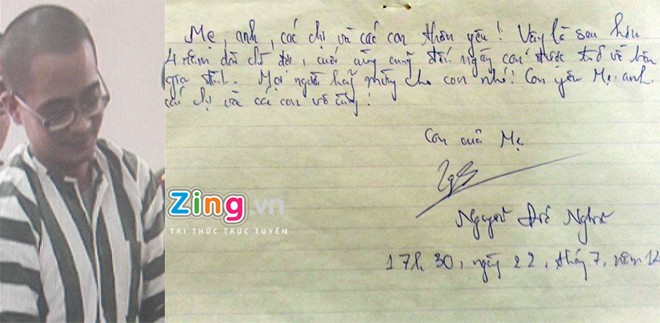 Mẹ, anh, các chị và các con thân yêu! Vậy là sau hơn
4 năm dài chờ đợi, cuối cùng cũng đến ngày con được trở về bên
gia đình. Mọi người hãy mừng cho con nhé! Con yêu Mẹ, anh,
các chị và các con vô cùng!
Con của Mẹ
Zing.vn
TRI THỨC TRỰC TUYẾN
Nguyễn Đức Nghĩa
17h 30, ngày 22, tháng 7, năm